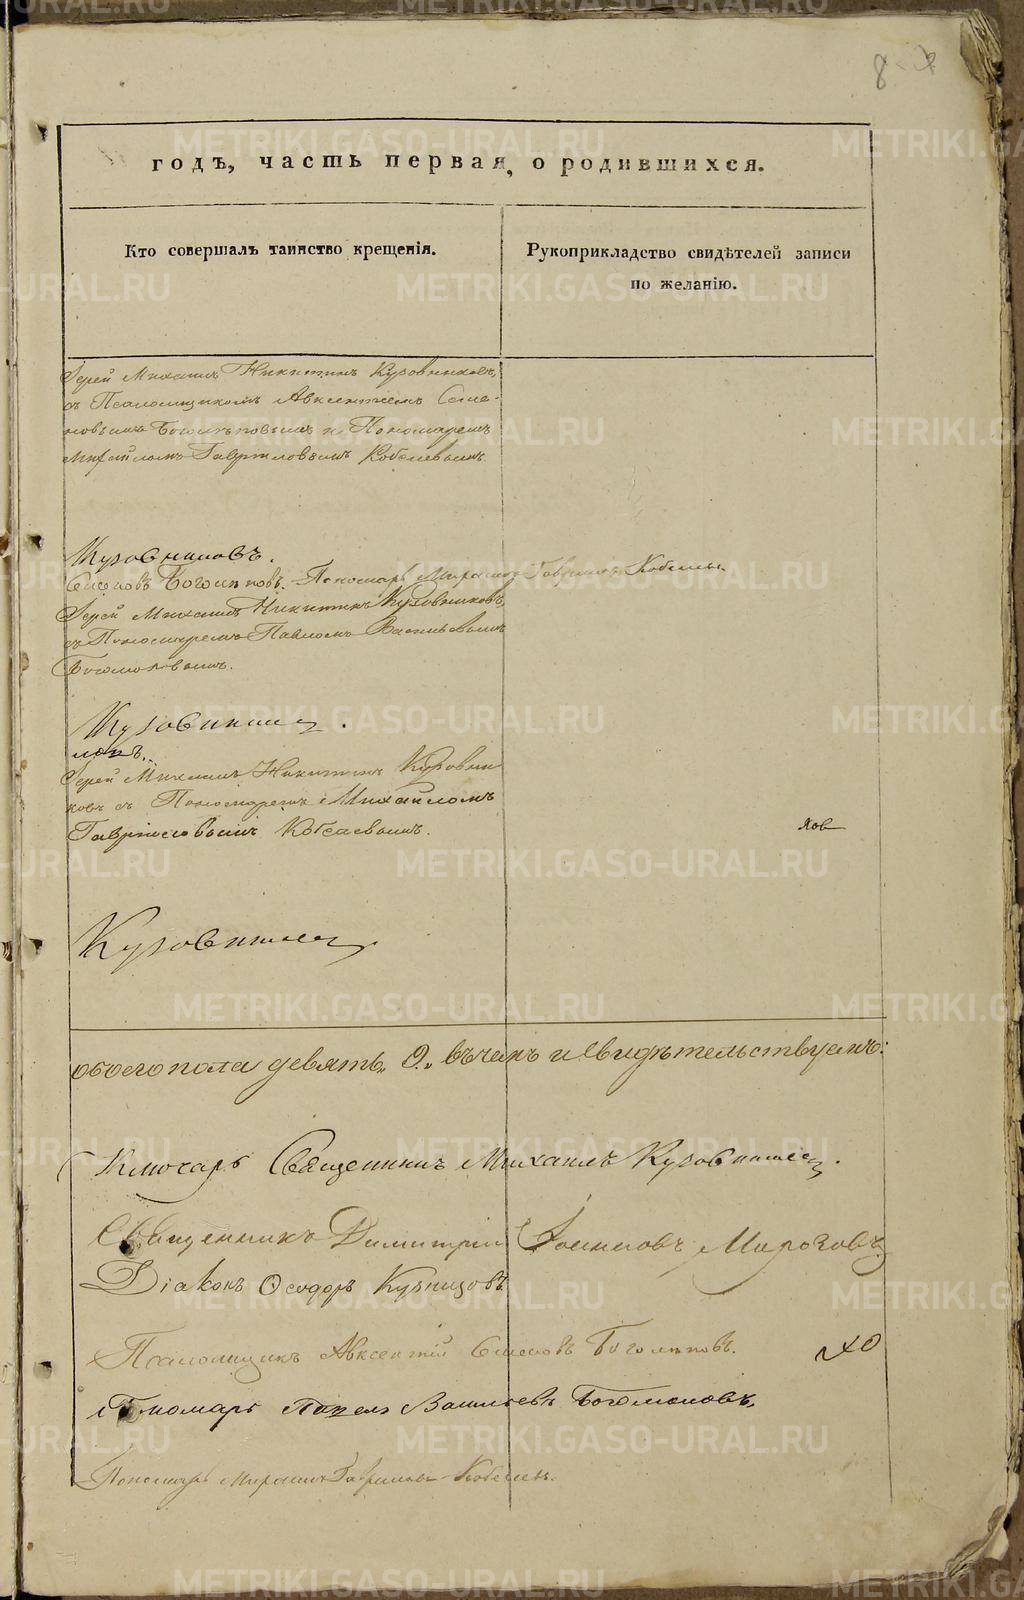 8
годъ, часть первая, о родившихся.
Кто совершалъ таинство крещенія.
Рукоприкладство свидѣтелей записи
по желанію.
Іерей Михаилъ Никитинъ Кузовниковъ,
съ Псаломщикомъ Авксентіемъ Семе-
новымъ Боголѣповымъ и Пономаремъ
Михайломъ Гавриловымъ Кобелевымъ.
Кузовниковъ.
Семеновъ Боголѣповъ. Пономарь
Іерей Михаилъ Никитинъ Кузовниковъ,
съ Пономаремъ Павломъ Васильевымъ
Богомоловымъ.
Кузовников
Іерей Михаилъ Никитинъ Кузовни
ковъ съ Пономаремъ Михайломъ
Гавриловымъ Кобелевымъ.
лов
Кузовников
обоего пола девять, 9. въ чемъ и свидѣтельствуемъ:
Ключарь Священникъ Михаилъ Кузовников.
Священникъ Димитрій Іоанновъ
Діаконъ Ѳеодоръ Кузнецовъ
Псаломщикъ Авксентій Семеновъ Боголѣповъ.
Пономарь Павелъ Васильевъ Богомоловъ,
Пономарь Гавриловъ Кобелевъ.
METRIKI.GASO-URAL.RU